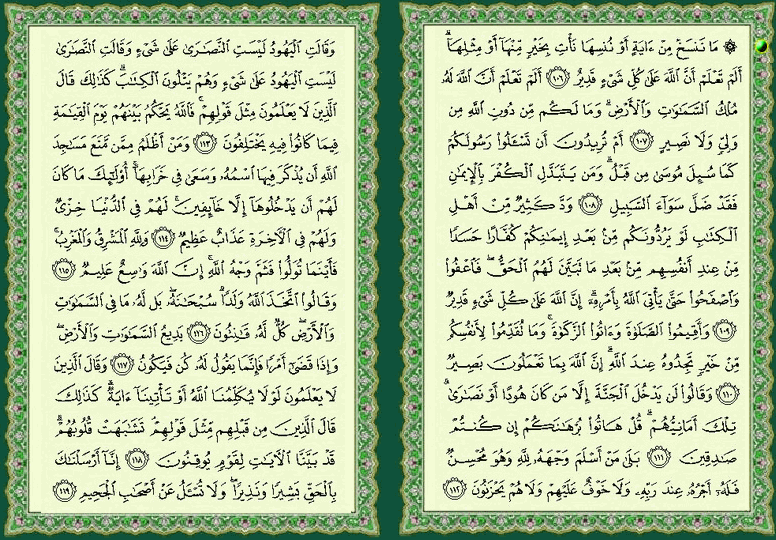 ۞ مَا نَنسَخْ مِنْ ءَايَةٍ أَوْ نُنسِهَا نَأْتِ بِخَيْرٍ مِّنْهَآ أَوْ مِثْلِهَآ ۗ
أَلَمْ تَعْلَمْ أَنَّ ٱللَّهَ عَلَىٰ كُلِّ شَىْءٍ قَدِيرٌ ﴿١٠٦﴾ أَلَمْ تَعْلَمْ أَنَّ ٱللَّهَ لَهُۥ
مُلْكُ ٱلسَّمَـٰوَٰتِ وَٱلْأَرْضِ ۗ وَمَا لَكُم مِّن دُونِ ٱللَّهِ مِن
وَلِىٍّ وَلَا نَصِيرٍ ﴿١٠٧﴾ أَمْ تُرِيدُونَ أَن تَسْـَٔلُوا۟ رَسُولَكُمْ
كَمَا سُئِلَ مُوسَىٰ مِن قَبْلُ ۗ وَمَن يَتَبَدَّلِ ٱلْكُفْرَ بِٱلْإِيمَـٰنِ
فَقَدْ ضَلَّ سَوَآءَ ٱلسَّبِيلِ ﴿١٠٨﴾ وَدَّ كَثِيرٌ مِّنْ أَهْلِ
ٱلْكِتَـٰبِ لَوْ يَرُدُّونَكُم مِّنۢ بَعْدِ إِيمَـٰنِكُمْ كُفَّارًا حَسَدًا
مِّنْ عِندِ أَنفُسِهِم مِّنۢ بَعْدِ مَا تَبَيَّنَ لَهُمُ ٱلْحَقُّ ۖ فَٱعْفُوا۟
وَٱصْفَحُوا۟ حَتَّىٰ يَأْتِىَ ٱللَّهُ بِأَمْرِهِۦٓ ۗ إِنَّ ٱللَّهَ عَلَىٰ كُلِّ شَىْءٍ قَدِيرٌ
﴿١٠٩﴾ وَأَقِيمُوا۟ ٱلصَّلَوٰةَ وَءَاتُوا۟ ٱلزَّكَوٰةَ ۚ وَمَا تُقَدِّمُوا۟ لِأَنفُسِكُم
مِّنْ خَيْرٍ تَجِدُوهُ عِندَ ٱللَّهِ ۗ إِنَّ ٱللَّهَ بِمَا تَعْمَلُونَ بَصِيرٌ
﴿١١٠﴾ وَقَالُوا۟ لَن يَدْخُلَ ٱلْجَنَّةَ إِلَّا مَن كَانَ هُودًا أَوْ نَصَـٰرَىٰ ۗ
تِلْكَ أَمَانِيُّهُمْ ۗ قُلْ هَاتُوا۟ بُرْهَـٰنَكُمْ إِن كُنتُمْ
صَـٰدِقِينَ ﴿١١١﴾ بَلَىٰ مَنْ أَسْلَمَ وَجْهَهُۥ لِلَّهِ وَهُوَ مُحْسِنٌ
فَلَهُۥٓ أَجْرُهُۥ عِندَ رَبِّهِۦ وَلَا خَوْفٌ عَلَيْهِمْ وَلَا هُمْ يَحْزَنُونَ ﴿١١٢﴾
وَقَالَتِ ٱلْيَهُودُ لَيْسَتِ ٱلنَّصَـٰرَىٰ عَلَىٰ شَىْءٍ وَقَالَتِ ٱلنَّصَـٰرَىٰ
لَيْسَتِ ٱلْيَهُودُ عَلَىٰ شَىْءٍ وَهُمْ يَتْلُونَ ٱلْكِتَـٰبَ ۗ كَذَٰلِكَ قَالَ
ٱلَّذِينَ لَا يَعْلَمُونَ مِثْلَ قَوْلِهِمْ ۚ فَٱللَّهُ يَحْكُمُ بَيْنَهُمْ يَوْمَ ٱلْقِيَـٰمَةِ
فِيمَا كَانُوا۟ فِيهِ يَخْتَلِفُونَ ﴿١١٣﴾ وَمَنْ أَظْلَمُ مِمَّن مَّنَعَ مَسَـٰجِدَ
ٱللَّهِ أَن يُذْكَرَ فِيهَا ٱسْمُهُۥ وَسَعَىٰ فِى خَرَابِهَآ ۚ أُو۟لَـٰٓئِكَ مَا كَانَ
لَهُمْ أَن يَدْخُلُوهَآ إِلَّا خَآئِفِينَ ۚ لَهُمْ فِى ٱلدُّنْيَا خِزْىٌ
وَلَهُمْ فِى ٱلْـَٔاخِرَةِ عَذَابٌ عَظِيمٌ ﴿١١٤﴾ وَلِلَّهِ ٱلْمَشْرِقُ وَٱلْمَغْرِبُ ۚ
فَأَيْنَمَا تُوَلُّوا۟ فَثَمَّ وَجْهُ ٱللَّهِ ۚ إِنَّ ٱللَّهَ وَٰسِعٌ عَلِيمٌ ﴿١١٥﴾
وَقَالُوا۟ ٱتَّخَذَ ٱللَّهُ وَلَدًا ۗ سُبْحَـٰنَهُۥ ۖ بَل لَّهُۥ مَا فِى ٱلسَّمَـٰوَٰتِ
وَٱلْأَرْضِ ۖ كُلٌّ لَّهُۥ قَـٰنِتُونَ ﴿١١٦﴾ بَدِيعُ ٱلسَّمَـٰوَٰتِ وَٱلْأَرْضِ ۖ
وَإِذَا قَضَىٰٓ أَمْرًا فَإِنَّمَا يَقُولُ لَهُۥ كُن فَيَكُونُ ﴿١١٧﴾ وَقَالَ ٱلَّذِينَ
لَا يَعْلَمُونَ لَوْلَا يُكَلِّمُنَا ٱللَّهُ أَوْ تَأْتِينَآ ءَايَةٌ ۗ كَذَٰلِكَ
قَالَ ٱلَّذِينَ مِن قَبْلِهِم مِّثْلَ قَوْلِهِمْ ۘ تَشَـٰبَهَتْ قُلُوبُهُمْ ۗ
قَدْ بَيَّنَّا ٱلْـَٔايَـٰتِ لِقَوْمٍ يُوقِنُونَ ﴿١١٨﴾ إِنَّآ أَرْسَلْنَـٰكَ
بِٱلْحَقِّ بَشِيرًا وَنَذِيرًا ۖ وَلَا تُسْـَٔلُ عَنْ أَصْحَـٰبِ ٱلْجَحِيمِ ﴿١١٩﴾